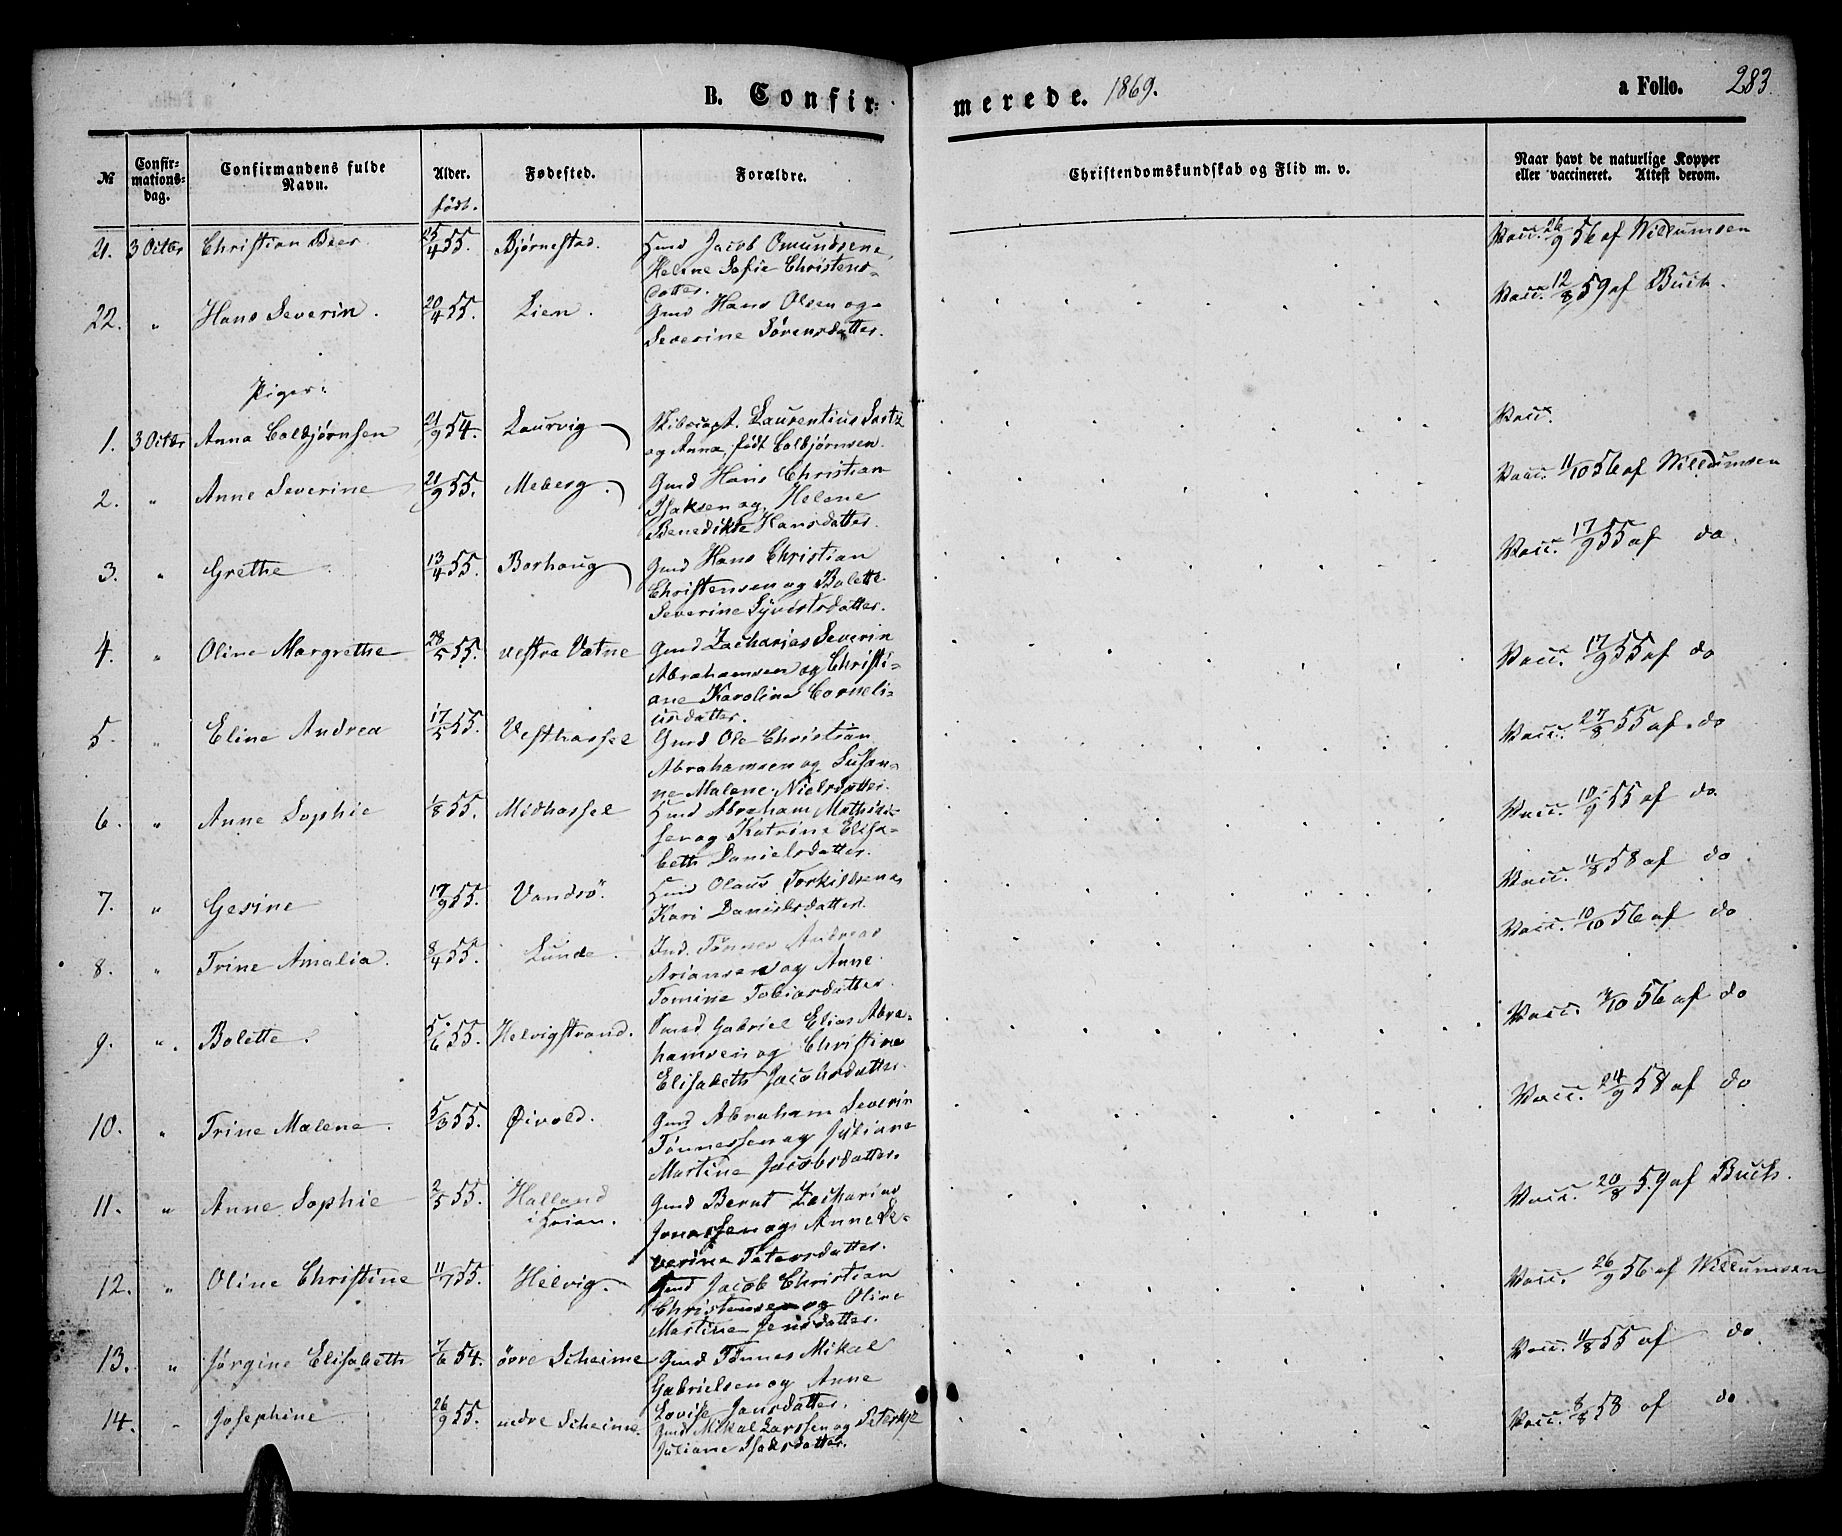 B. Confir-
merede. 1869.
a Folio. 283.
№
Confir-
mations-
dag.
Confirmandens fulde
Navn.
Alder.
født.
Fødested.
Forældre.
Christendomskundskab og Flid m. v.
Naar havt de naturlige Kopper
eller vaccineret. Attest derom.
21. 3 Octbr Christian Beer. 25/4 55. Bjørnestad. Hmd Jacob Omundsen,
Helene Sofie Christens-
datter.
Vacc. 26/9 56 af Willumsen
22. " Hans Severin. 20/4 55. Lien. Gmd Hans Olsen og
Severine Sørensdatter.
Vacc. 12/8 59 af Buch.
Piger:
1. 3 Octbr Anna Colbjørnsen 21/9 54. Laurvig Skibscapt. Laurentius
og Anna, født Colbjørnsen.
Vacc.
2. " Anne Severine 21/9 55. Meberg. Gmd Hans Christian
Isaksen og Helene
Benedikte Hansdatter.
Vacc. 11/10 56 af Willumsen
3. " Grethe 13/4 55. Borhaug Gmd Hans Christian
Christensen og Bolette
Severine Syvertsdatter.
Vacc. 17/9 55 af do.
4. " Oline Margrethe 28/5 55. vestra Vatne Gmd Zacharias Severin
Abrahamsen og Christi-
ane Karoline Corneli-
usdatter.
Vacc. 17/9 55 af do
5. " Eline Andrea 17/5 55. Vesthassel Gmd Ole Christian
Abrahamsen og Susan-
ne Malene Nielsdatter.
Vacc. 27/8 55 af do
6. " Anne Sophie 1/8 55. Midhassel Hmd Abraham Mathias-
sen og Katrine Elisa-
beth Danielsdatter.
Vacc. 10/9 55 af do.
7. " Gesine 19/9 55. Vandsø. Hmd Olaus Torkildsen,
Kari Danielsdatter.
Vacc. 11/8 58 af do.
8. " Trine Amalia. 8/4 55. Lunde. Ind. Tønnes Andreas
Ariansen og Anne
Tomine Tobiasdatter.
Vacc. 10/10 56 af do
9. " Bolette. 5/6 55. Helvigstrand. Smed Gabriel Elias Abra-
hamsen og Christine
Elisabeth Jacobsdatter.
Vacc. /10 56 af do
10. " Trine Malene. 5/3 55. Øivold. Gmd Abraham Severin
Tønnessen og Juliane
Martine Jacobsdatter.
Vacc. 24/9 58 af do
11. " Anne Sophie 2/5 55. Halland
i Heien. Gmd Bernt Zacharias
Jonassen og Anne Se-
verine Petersdatter.
Vacc. 20/8 59 af Buch.
12. " Oline Christine 11/7 55. Helvig. Gmd Jacob Christian
Christensen og Oline
Martine Jensdatter.
Vacc. 26/9 56 af Willumsen
13. " Jørgine Elisabeth 7/6 54. øvre Scheime Gmd Tønnes Mikal
Gabrielsen og Anne
Lovise Jansdatter.
Vacc. 11/8 55 af do
14. " Josephine 26/9 55. nedre Scheime. Gmd Mikal Larssen og
Juliane Isaksdatter.
Vacc. 8/8 58 af do